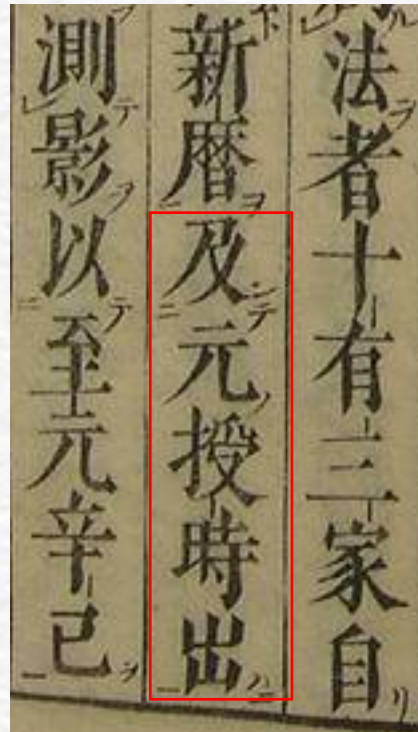 法者十有三家自
新暦及元授時出
測影以至元辛巳